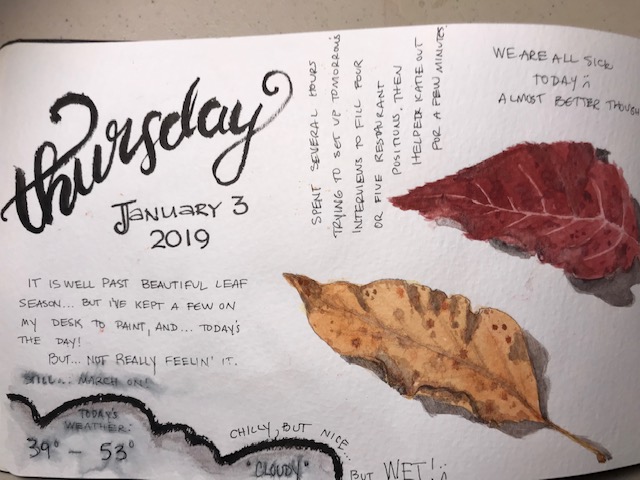 Thursday
January 3
2019
SPENT SEVERAL HOURS
TRYING TO SET UP TOMORROW'S
INTERVIEWS TO FILL FOUR
OR FIVE RESTAURANT
POSITIONS. THEN
HELPED KATIE OUT
FOR A FEW MINUTES.
WE ARE ALL SICK
TODAY
ALMOST BETTER THOUGH
IT IS WELL PAST BEAUTIFUL LEAF
SEASON... BUT I'VE KEPT A FEW ON
MY DESK TO PAINT, AND... TODAY'S
THE DAY!
BUT... NOT REALLY FEELIN' IT.
STILL... MARCH ON!
TODAY'S
WEATHER:
39° - 53°
CHILLY, BUT NICE...
"CLOUDY"
BUT WET!